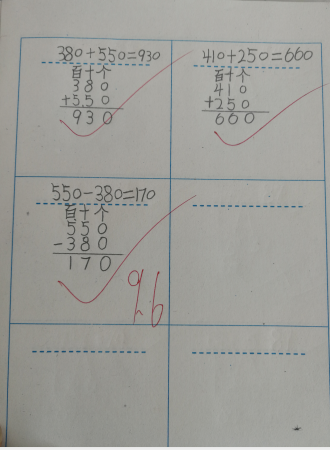 380+550=930
百十个
380
+550
930
410+250=660
百十个
410
+250
660
550-380=170
百十个
550
-380
170
96